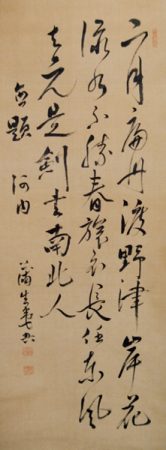 二月扁舟渡野津岸花
緑水不勝春旅衣長任東風
去元是剣書南北人
無題
河内
蒲生